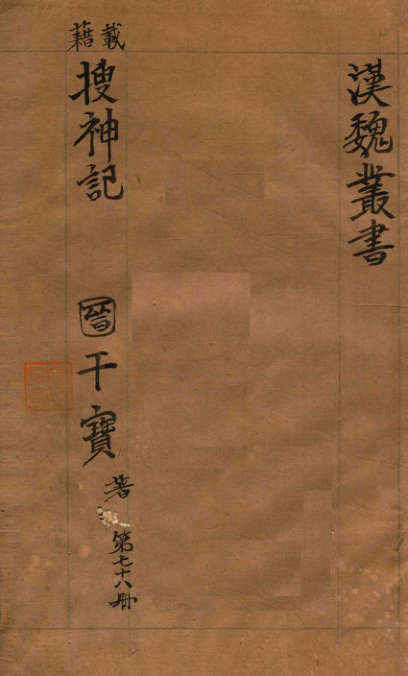 漢魏叢書
載籍
搜神記
晉干寶著
第七十八册